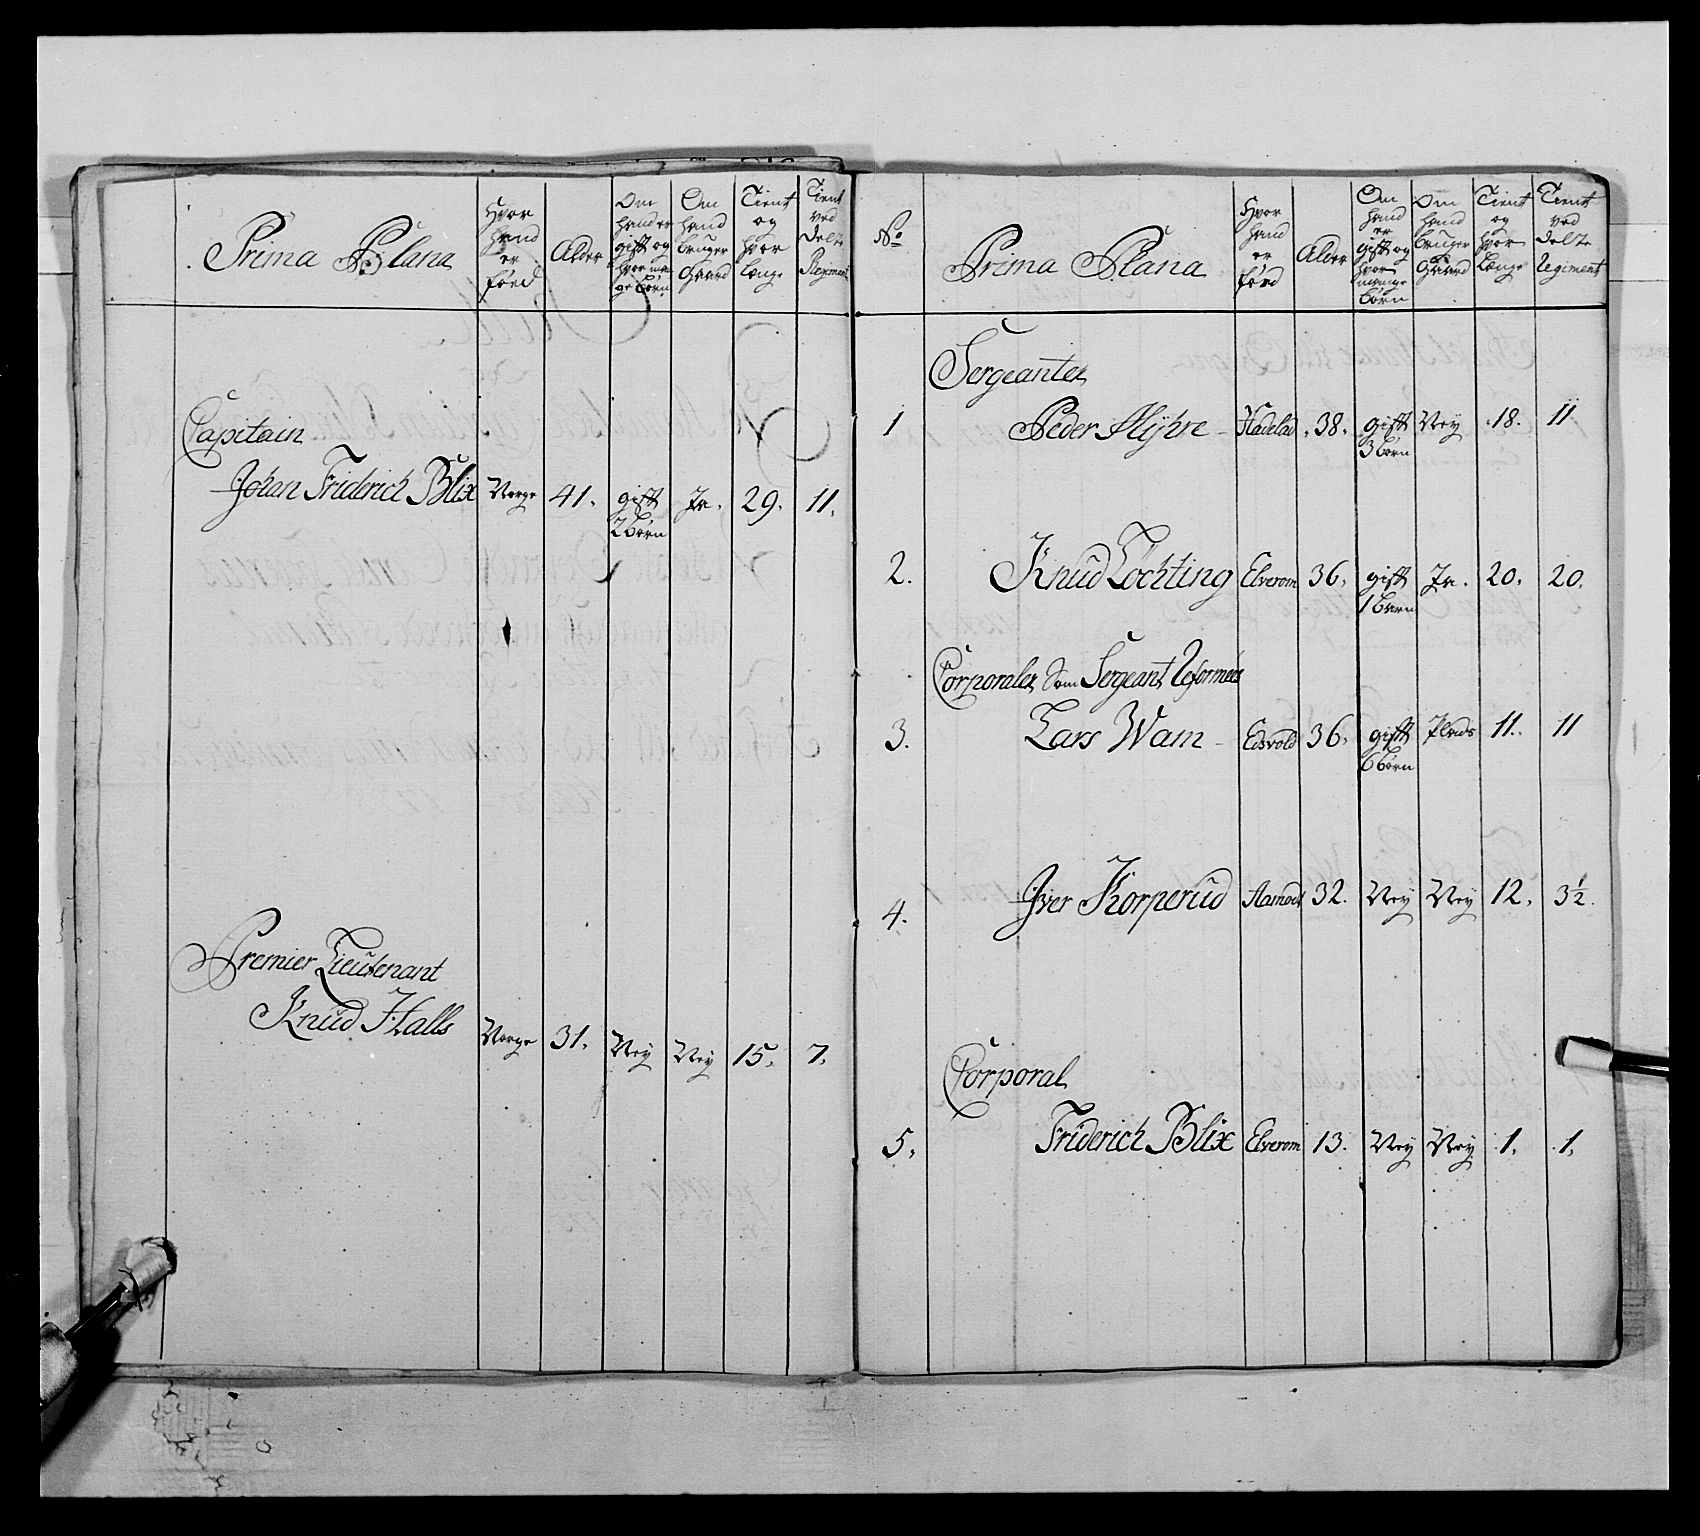 Prima Plana
Hvor hand er föed
Alder
Om hand er gift og hvor mange börn
Om hand bruger Gaard
Tient og hvor Længe
Tient ved dette Regiment
Capitain
Johan Friderich Blix Norge 41. gift 2 börn Ja. 29. 11.
Premier Lieutenant
Knud Halls Norge 31. Ney Ney 15. 7.
No
Prima Plana
Hvor hand er föed
Alder
Om hand er gift og hvor mange börn
Om hand bruger Gaard
Tient og hvor Længe
Tient ved dette Regiment
Sergeanter
1 Peder Myhre - Hadelad 38. gift 3 börn Ney 18. 11
2. Knud Lochting Elverom 36. gift 1 barn Ja. 20. 20.
Corporaler Som Sergeant Reformeer
3. Lars Wam - Edsvold 36. gift 6 börn Plads 11. 11
4. Iver Korperud Aamodt 32. Ney Ney 12. 3½.
Corporal
5. Friderich Blix Elverom 13. Ney Ney 1. 1.